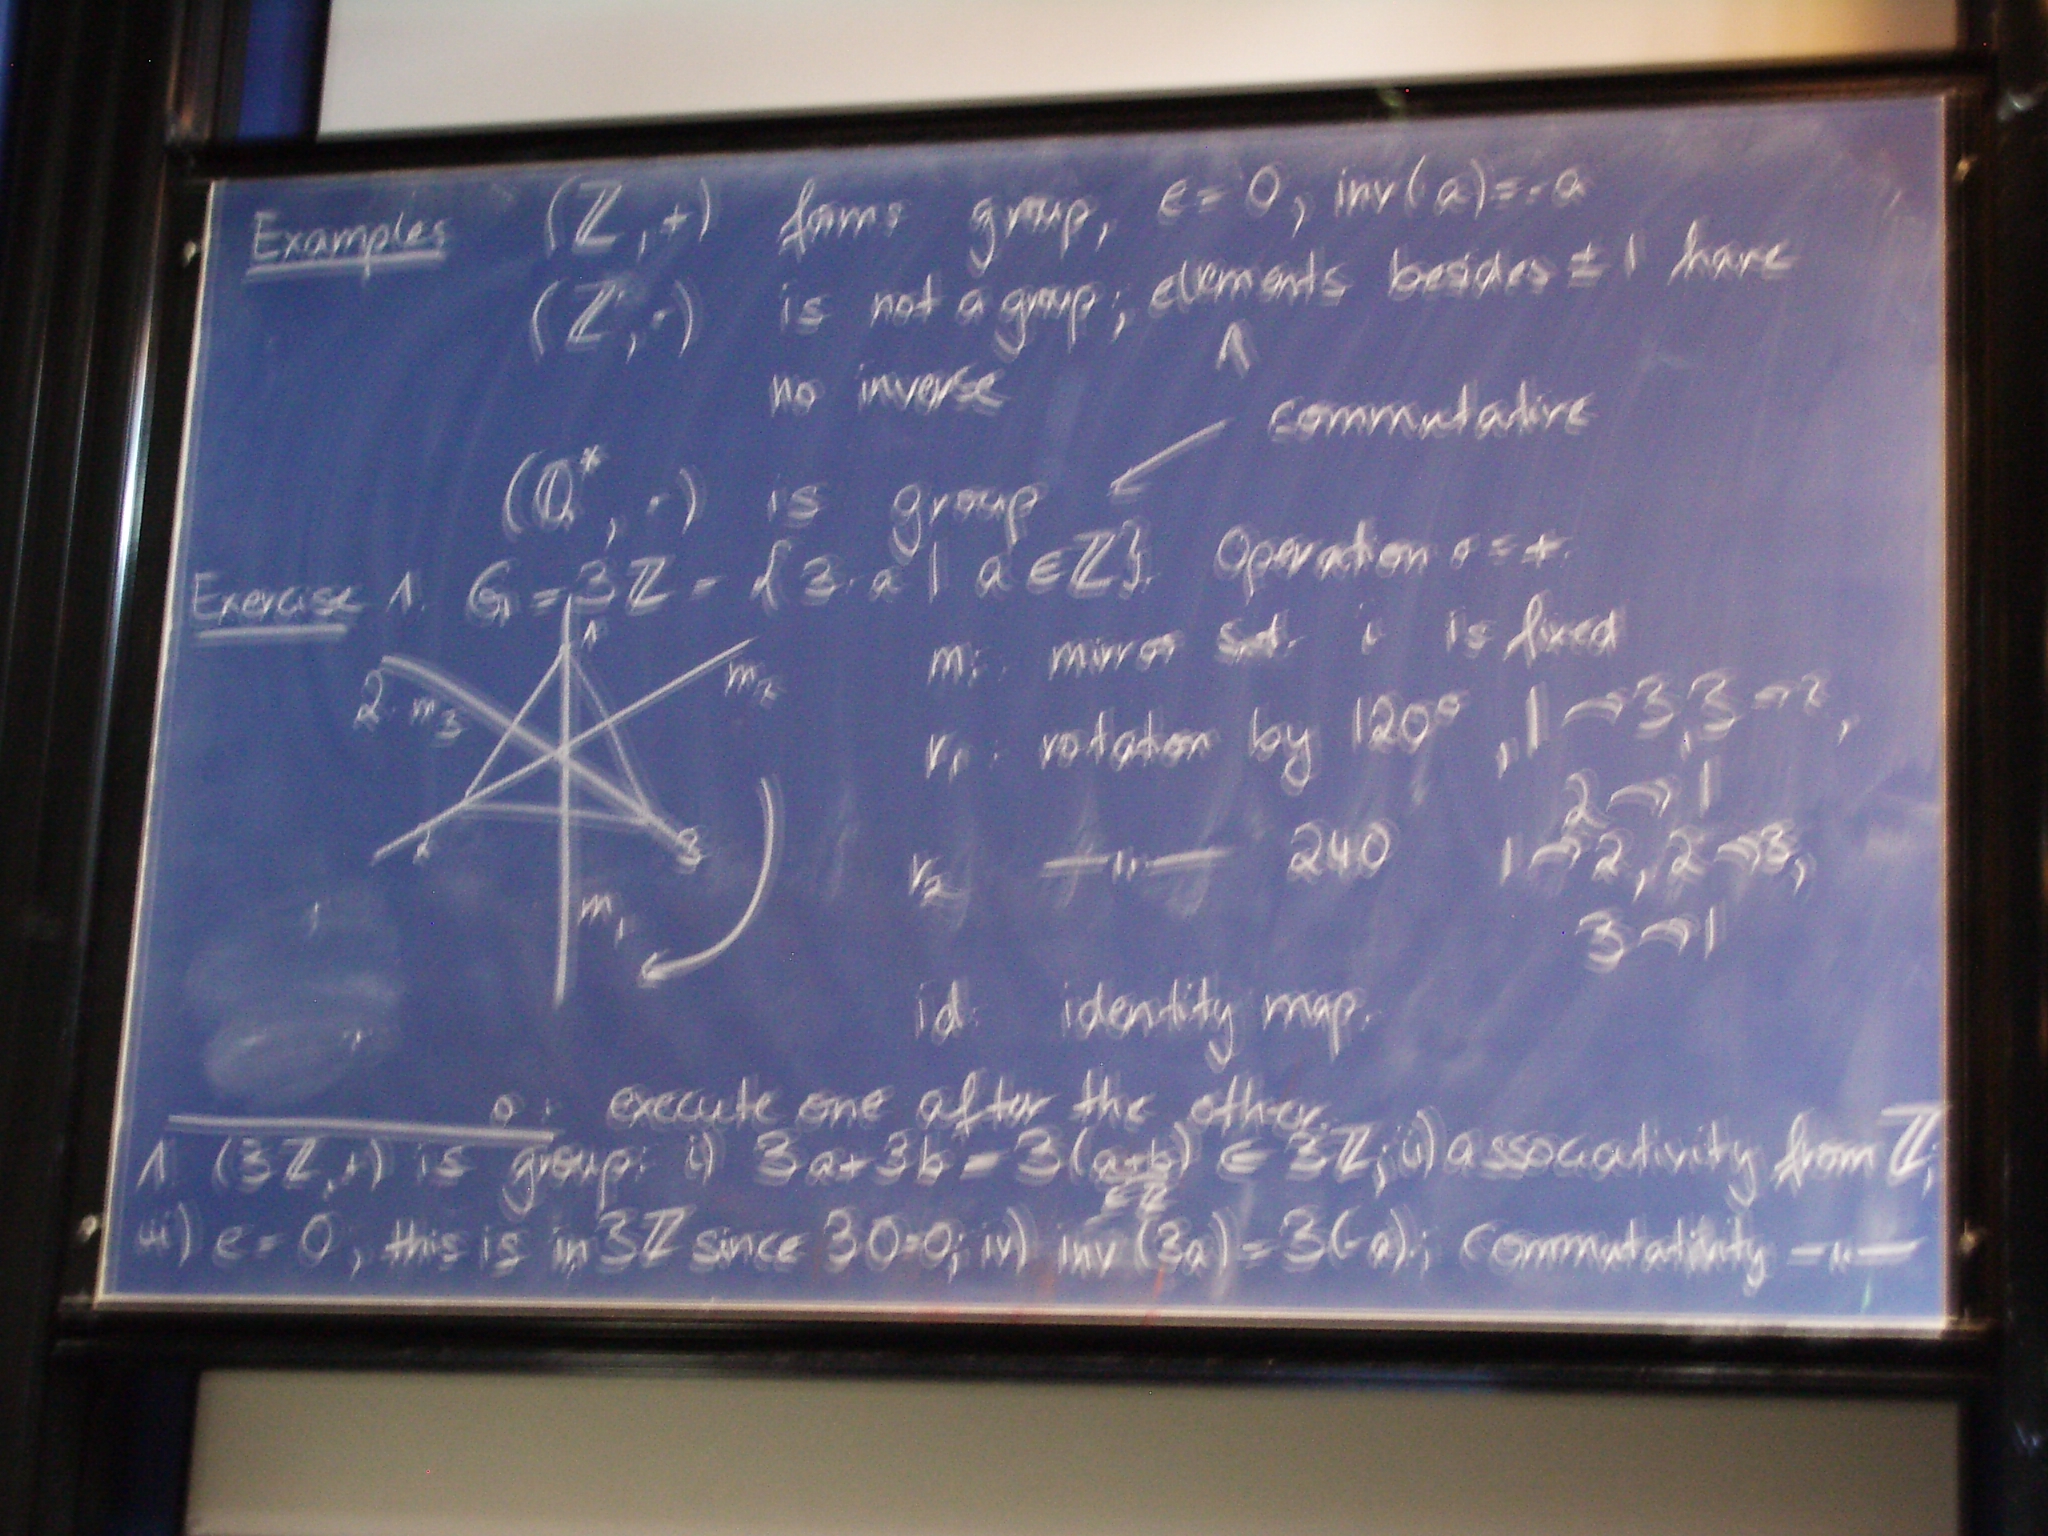 Examples (ℤ, +) forms group, e = 0, inv(a) = -a
(ℤ, ·) is not a group; elements besides ± 1 have
no inverse
commutative
(ℚ*, ·) is group
Exercise 1. G = 3ℤ = {3·a | a ∈ ℤ}. Operation ∘ = +.
1
2. m3
m2
2
3
m1
mi: mirror s.t. i is fixed
r1: rotation by 120°, 1→3, 3→2,
2→1
r2 —"— 240 1→2, 2→3,
3→1
id: identity map.
∘: execute one after the other.
1. (3ℤ, +) is group: i) 3a+3b = 3(a+b) ∈ 3ℤ; ii) associativity from ℤ;
∈ℤ
iii) e = 0, this is in 3ℤ since 3·0=0; iv) inv (3a) = 3(-a).; Commutativity —"—